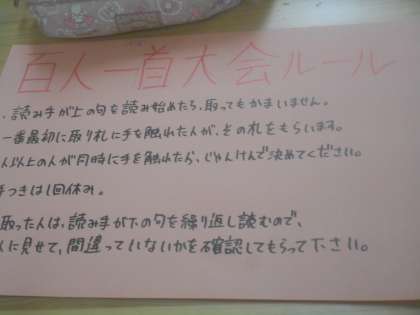 百人一首大会ルール
、読み手が上の句を読み始めたら、取ってもかまいません。
一番最初に取り札に手を触れた人が、その札をもらいます。
人以上の人が同時に手を触れたら、じゃんけんで決めてください。
手つきは1回休み。
取った人は、読み手が下の句を繰り返し読むので、
人に見せて、間違っていないかを確認してもらって下さい。